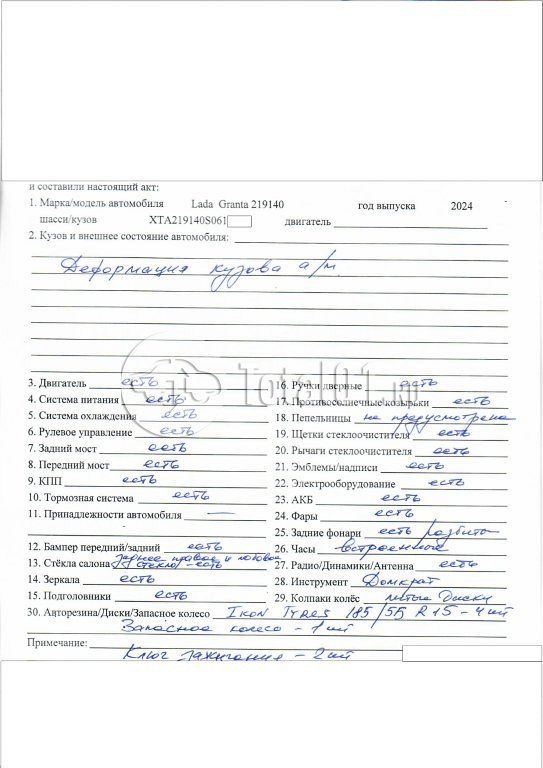 и составили настоящий акт:
1. Марка/модель автомобиля Lada Granta 219140 год выпуска 2024
шасси/кузов XTA219140S061 двигатель
2. Кузов и внешнее состояние автомобиля:
Деформация кузова а/м.
Total01.ru
3. Двигатель есть
4. Система питания есть
5. Система охлаждения есть
6. Рулевое управление есть
7. Задний мост есть
8. Передний мост есть
9. КПП есть
10. Тормозная система есть
11. Принадлежности автомобиля —
12. Бампер передний/задний есть
13. Стёкла салона заднее правое и лобовое
стекло - есть
14. Зеркала есть
15. Подголовники есть
16. Ручки дверные есть
17. Противосолнечные козырьки есть
18. Пепельницы не предусмотрена
19. Щетки стеклоочистителя есть
20. Рычаги стеклоочистителя есть
21. Эмблемы/надписи есть
22. Электрооборудование есть
23. АКБ есть
24. Фары есть
25. Задние фонари есть разбиты
26. Часы встроенные
27. Радио/Динамики/Антенна есть
28. Инструмент Домкрат
29. Колпаки колёс литые диски
30. Авторезина/Диски/Запасное колесо IKON TYRES 185/55 R15 - 4 шт
Запасное колесо - 1 шт
Примечание:
Ключ зажигания - 2 шт